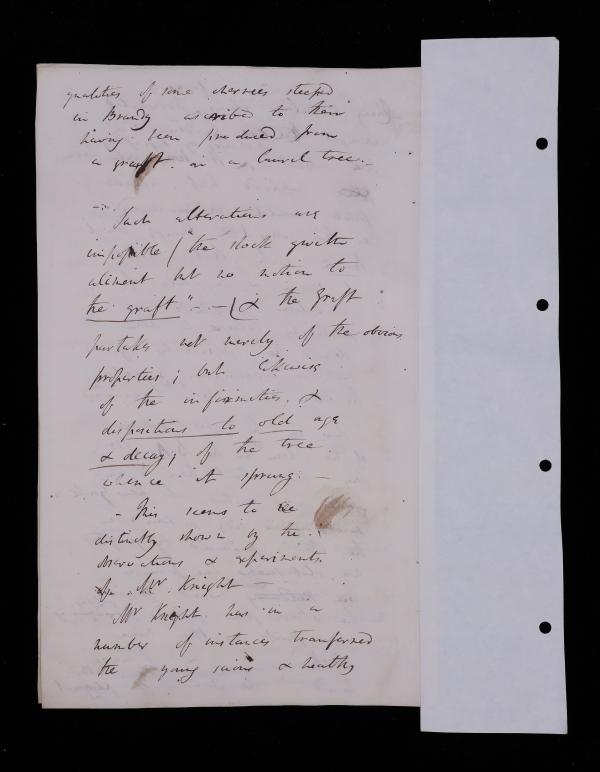 qualities of some cherries steeped
in Brandy ascribed to their
having been produced from
a graft on a laurel tree. -
- Such alterations are
impossible ("the stock giveth
aliment but no motion to
the graft" - - & the Graft
partakes not merely of the obvious
properties; but likewise
of the infirmities, &
dispositions to old age
& decay; of the tree
whence it sprung. -
- This seems to be
distinctly shown by the
observations & experiments
of Mr. Knight -
Mr Knight has in a
number of instances transferred
the young scions & healthy